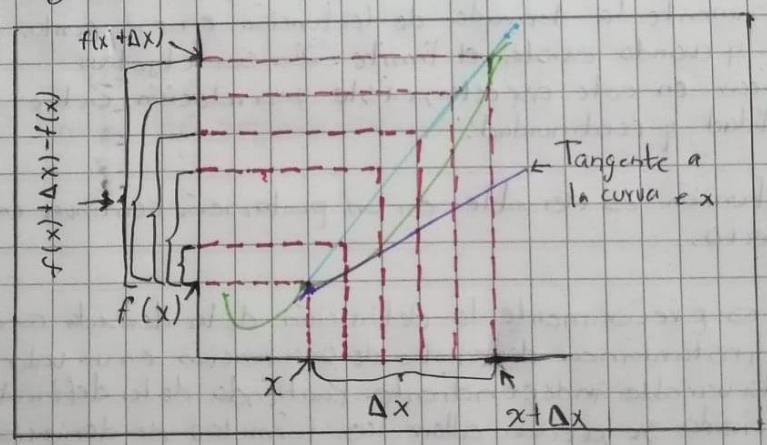 f(x+Δx)
f(x)+Δx)-f(x)
Tangente a
la curva e x
f(x)
x
Δx
x+Δx